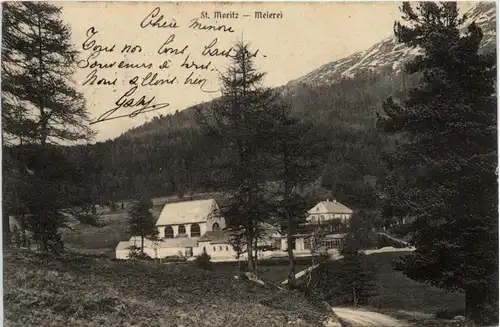 St. Moritz – Meierei
Chère Minone
Tous nos bons
Souvenirs à tous
Nous allons bien
Gaby